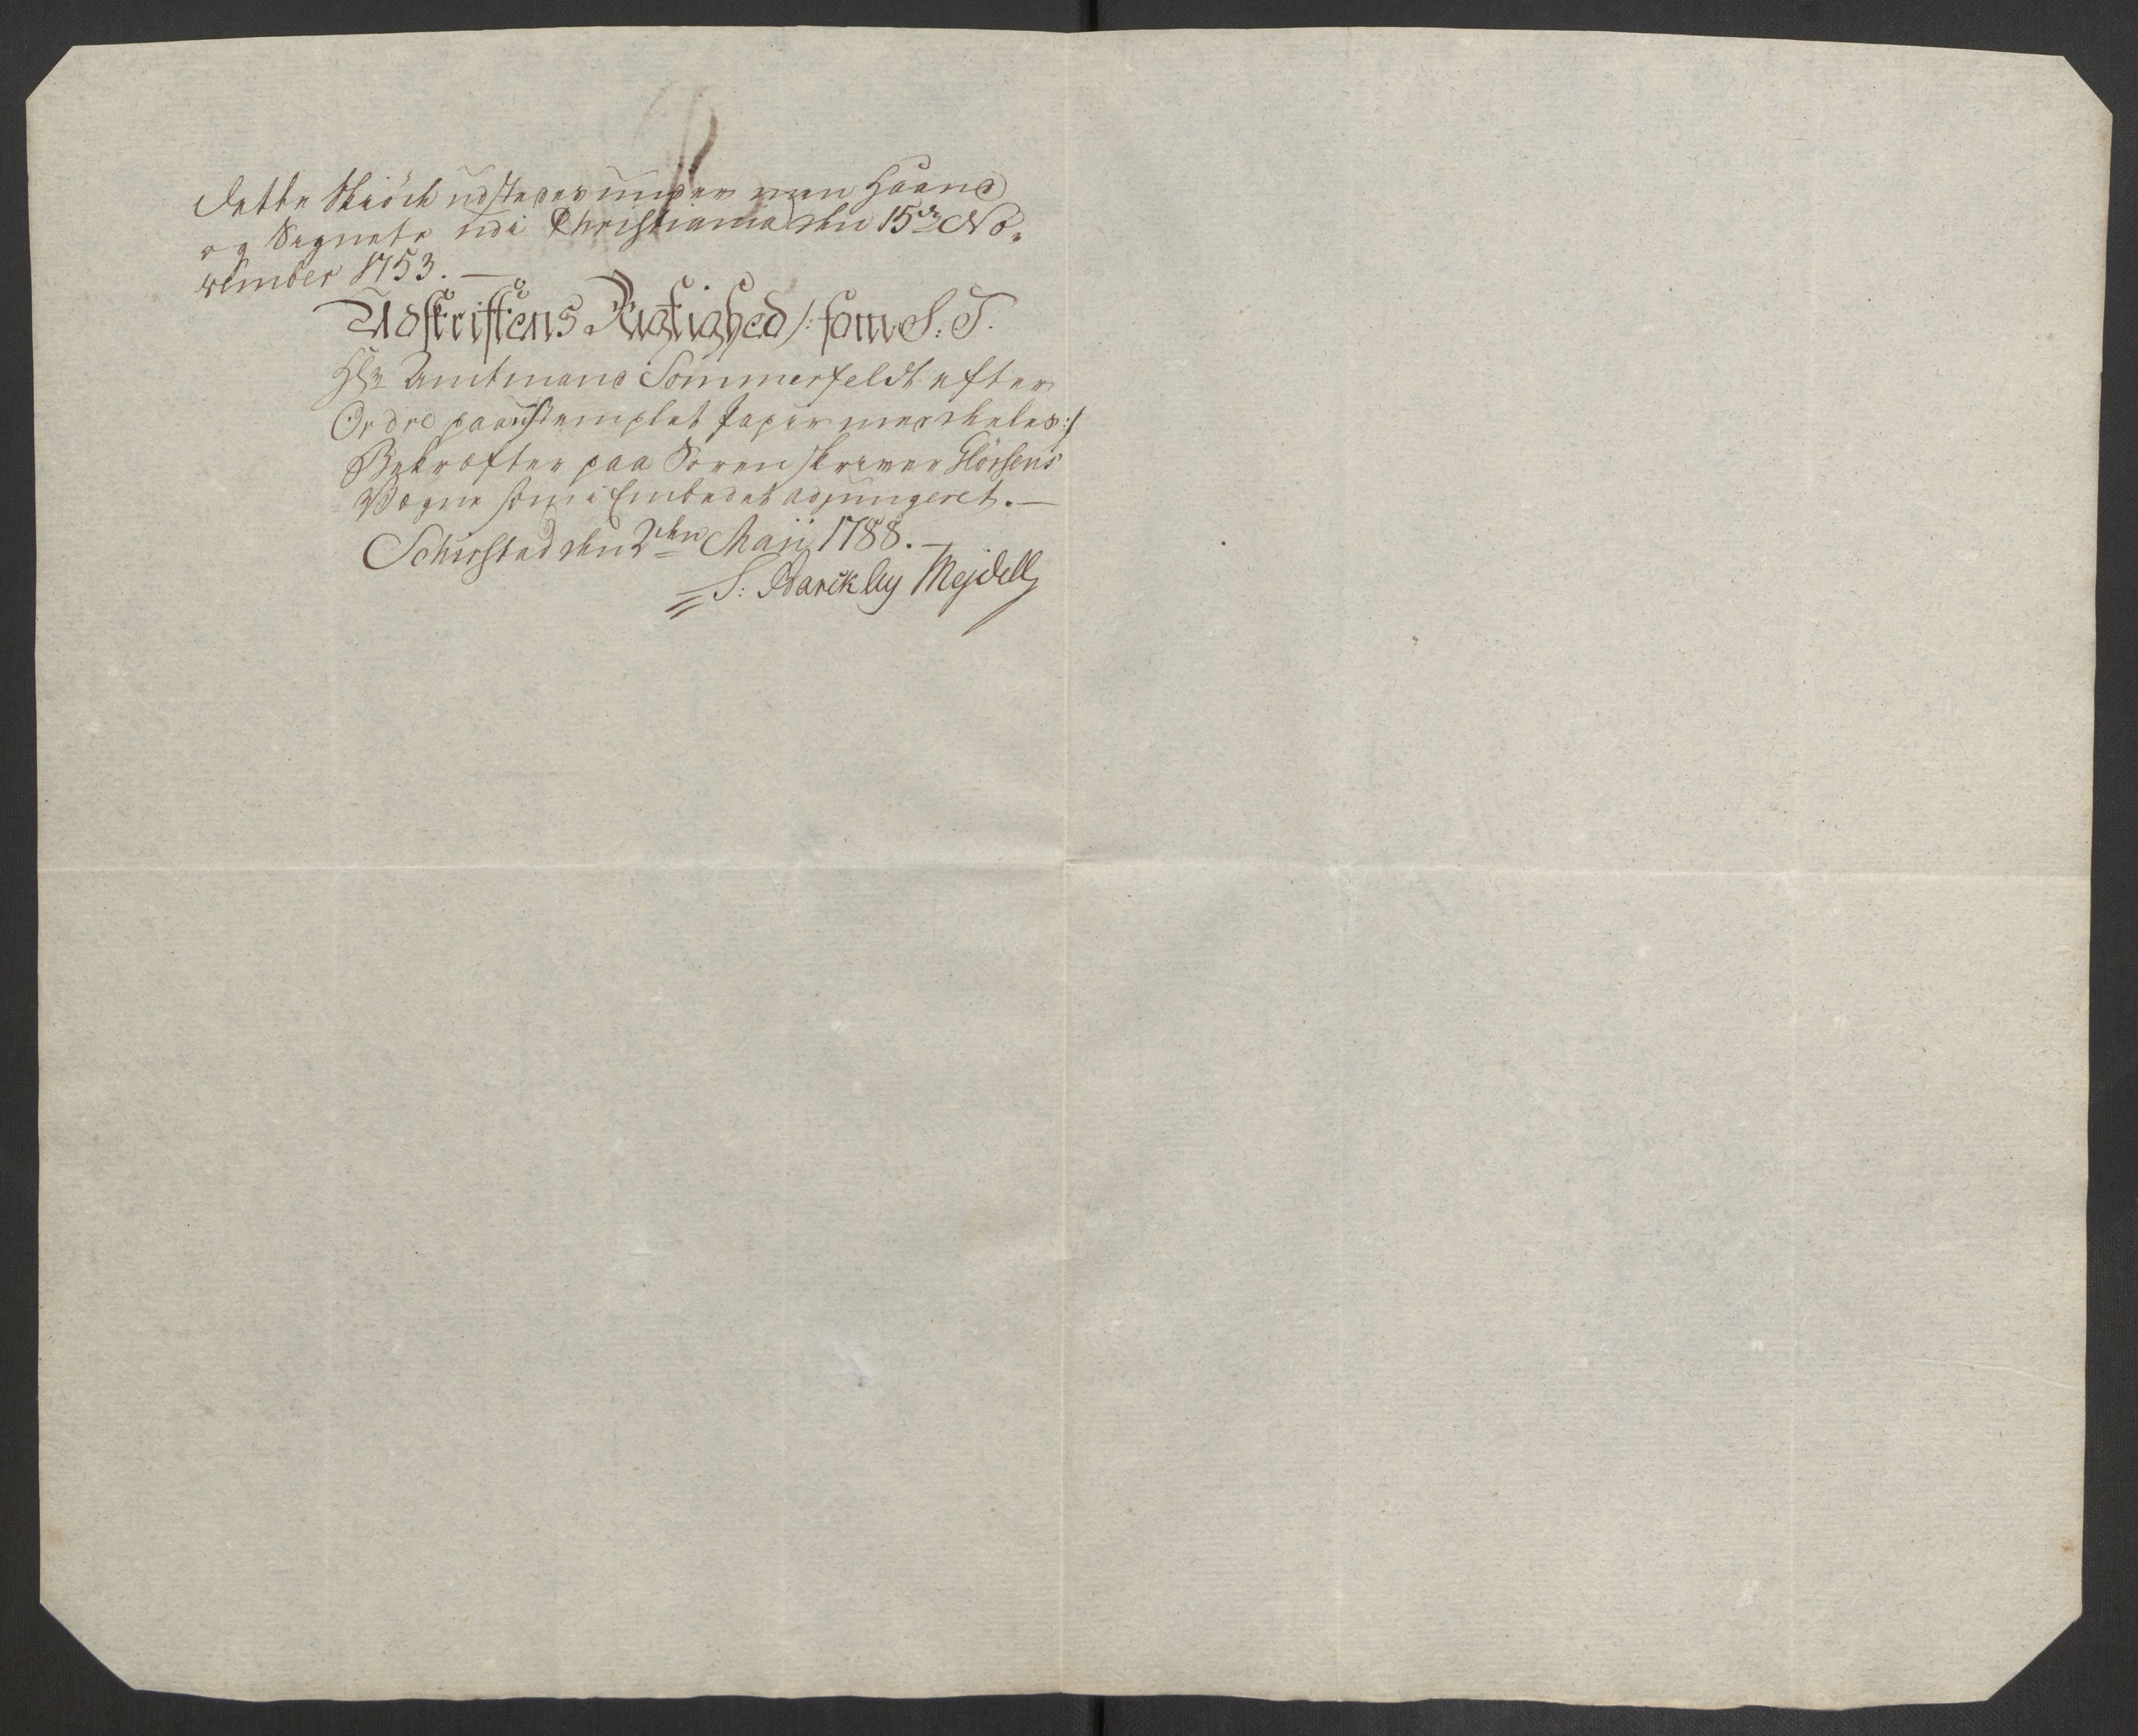 dette Skiöde udstedes under min Haand
og Signete udi Christiania den 15de No„
vember 1753. —
Udskriftens Rigtighed /: som S: T.
Hr Amtmand Sommerfeldt efter
Ordre paa ustemplet Papir meddeles :/
Bekræfter paa Sorenskriver Flörsens
Vegne som i Embedet adjungeret. —
Schirstad den 2den Maji 1788. —
S: Barckley Mejdell